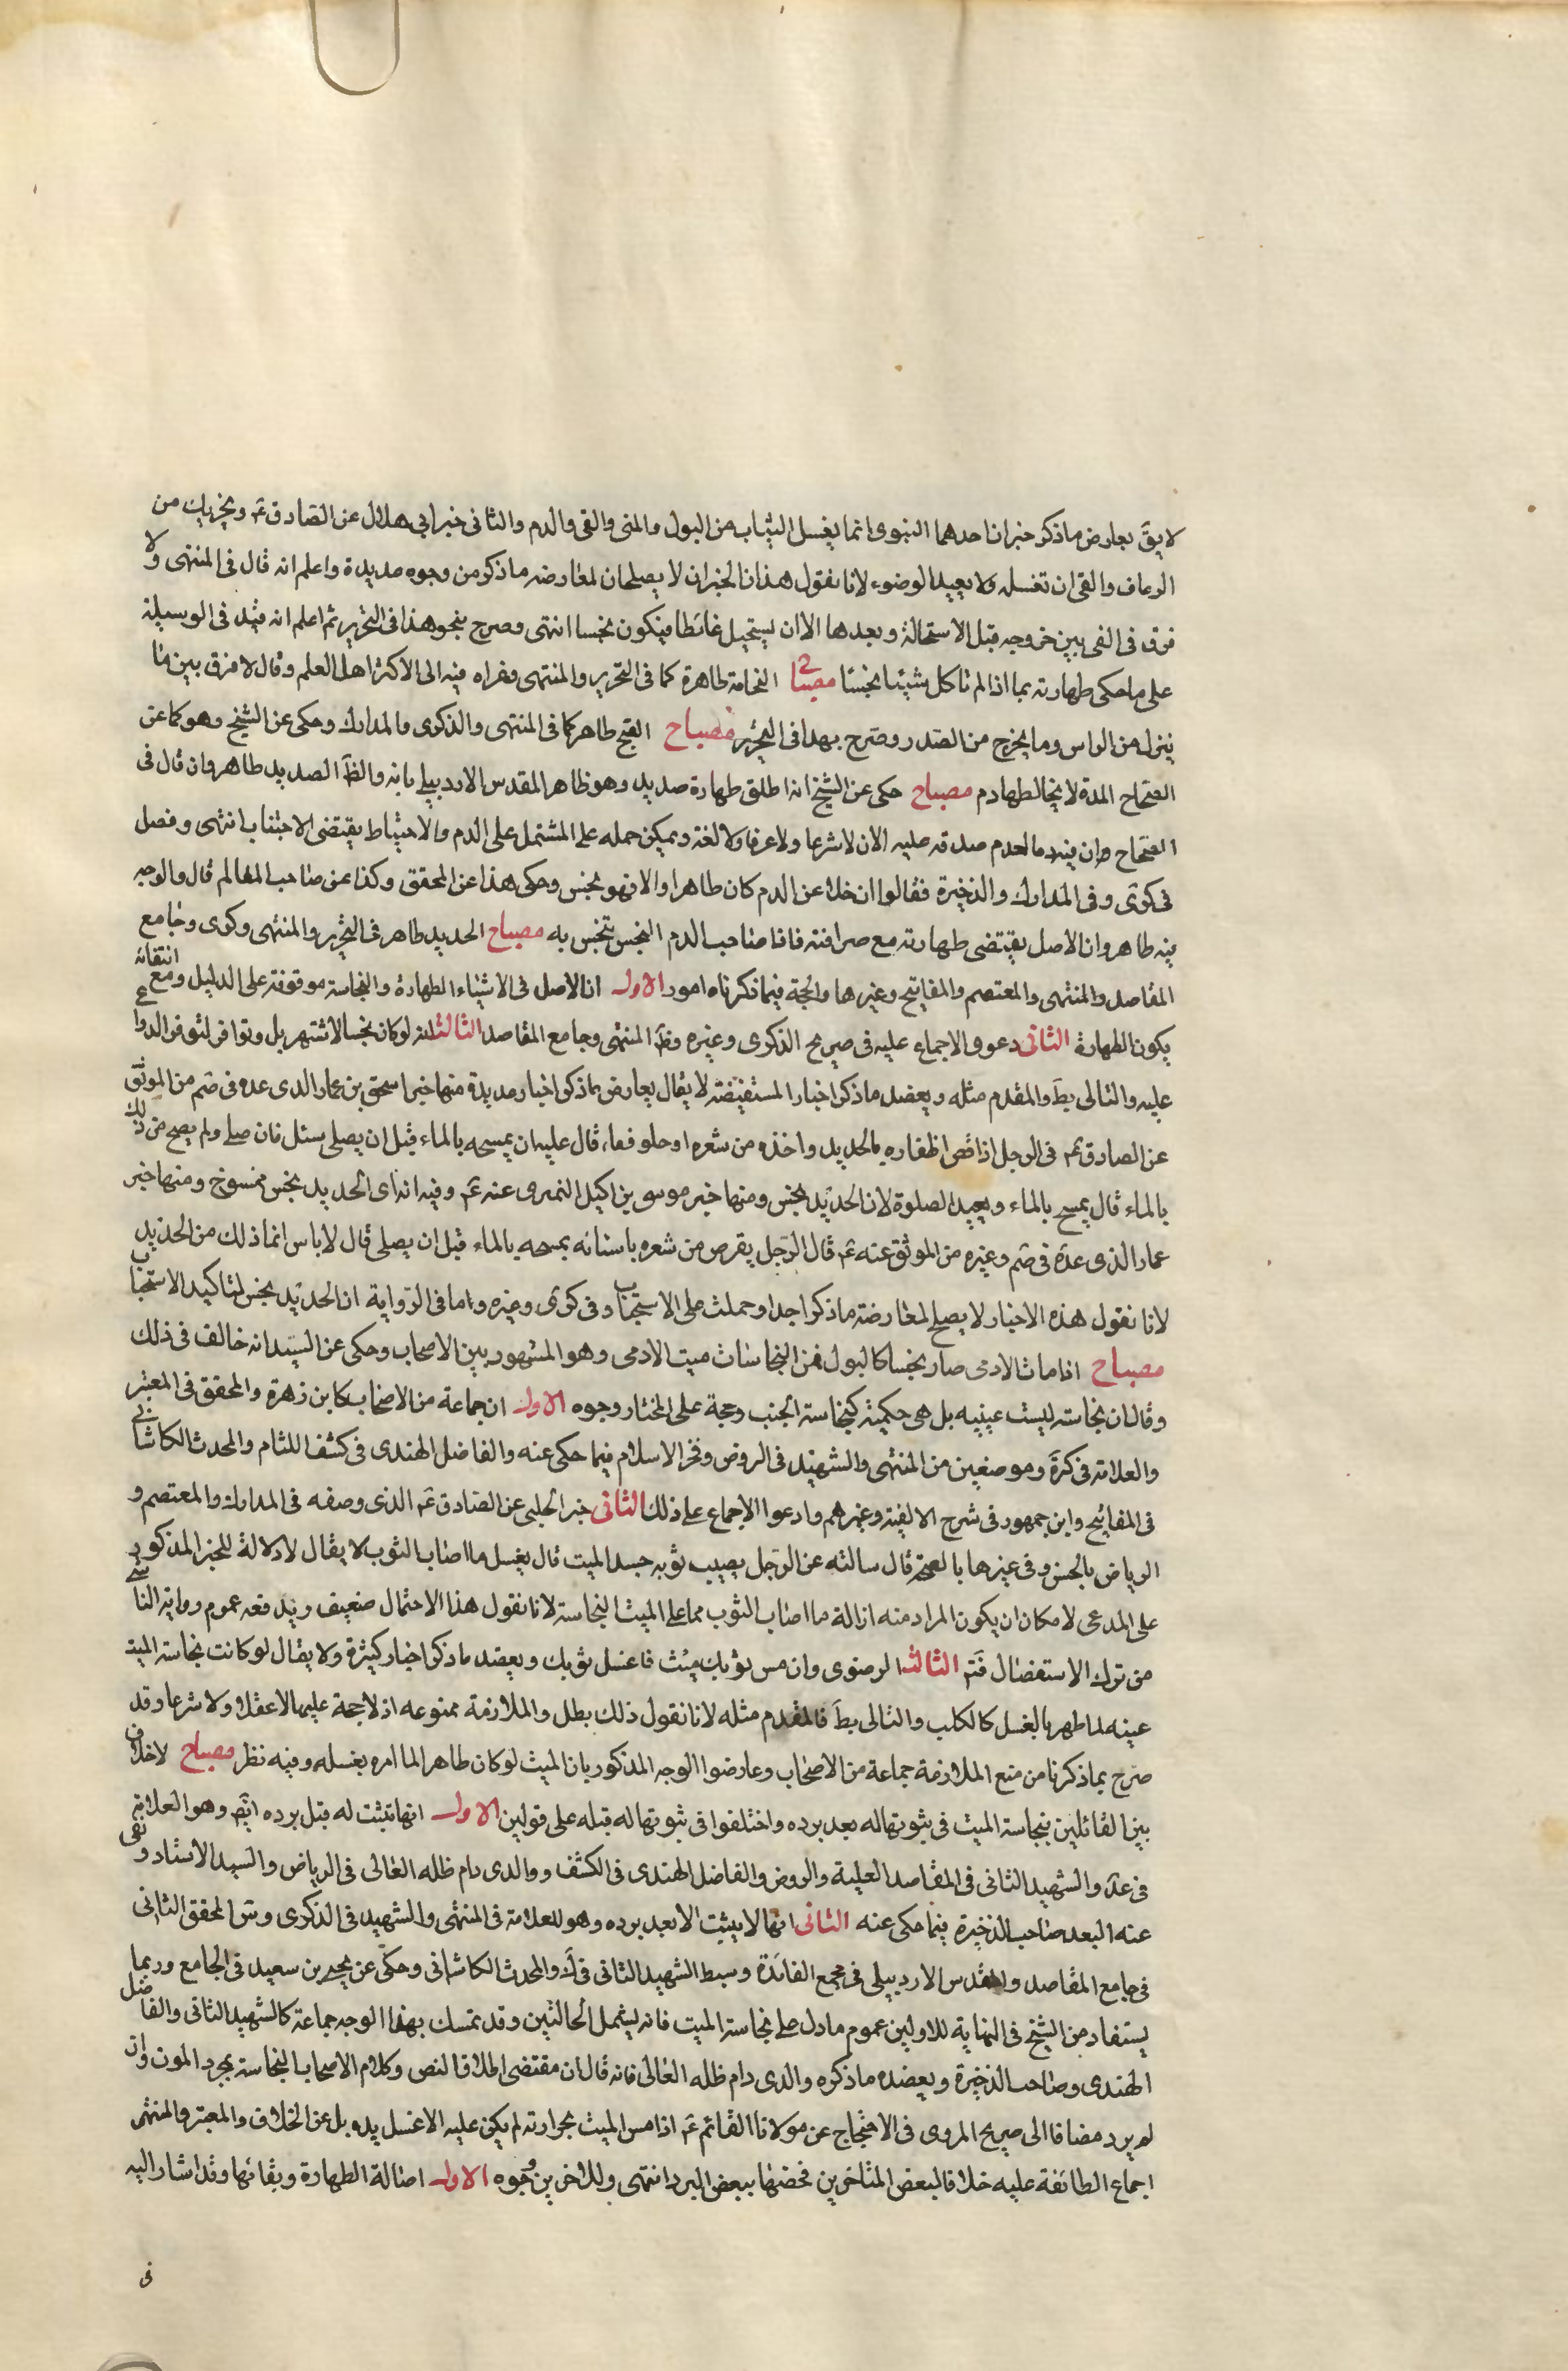 لا يق يعارض ما ذكر خبران احدهما النبوى انما يغسل الثياب من البول والمنى والقى والدم والثانى خبر ابى هلال عن الصادق عم ويخزيك من
الرعاف والقى ان تغسله ولا يعيد الوضوء لانا نقول هذان الخبران لا يصلحان لمعارضه ما ذكر من وجوه عديدة واعلم انه قال فى المنتهى ولا
فرق فى القى بين خروجه قبل الاستحالة وبعدها الا ان يستحيل غائطا فيكون نجسا انتهى وصرح بنحو هذا فى التحرير ثم اعلم انه قيد فى الوسيلة
على ما حكى طهارته بما اذا لم تاكل شيئا نجسا مصباح النخامة طاهرة كما فى التحرير والمنتهى وعزاه فيه الى الاكثر اهل العلم وقال لا فرق بين ما
ينزل من الراس وما يخرج من الصدر وصرح بهذا فى التحرير مصباح القيح طاهر كما فى المنتهى والذكرى والمدارك وحكى عن الشيخ وهو كما عن
الصحاح المدة لا يخالطها دم مصباح حكى عن الشيخ انه اطلق طهارة صديد وهو ظاهر المقدس الاردبيلى بانه والظ الصديد طاهر وان قال فى
الصحاح وان فيه دما لعدم صدقه عليه الان لا شرعا ولا عرفا ولا لغة ويمكن حمله على المشتمل على الدم والاحتياط يقتضى الاجتناب انتهى وفصل
فى كرى وفى المدارك والذخيرة فقالوا ان خلا عن الدم كان طاهرا والا فهو نجس وحكى هذا عن المحقق وكذا عن صاحب المعالم قال والوجه
فيه طاهر وان الاصل يقتضى طهارته مع صرافته فاذا صاحب الدم النجس تنجس به مصباح الحديد طاهر فى التحرير والمنتهى وكرى وجامع
المقاصد والمنتهى والمعتصم والمفاتيح وغيرها والحجة فيما ذكرناه امور الاول ان الاصل فى الاشياء الطهارة والنجاسة موقوفة على الدليل ومع انتفائه
يكون الطهارة الثانى دعوى الاجماع عليه فى صريح الذكرى وغيره وظ المنتهى وجامع المقاصد الثالث انه لو كان نجسا لاشتهر بل وتواتر لتوفر الدواعى
عليه والتالى بط والمقدم مثله ويعضد ما ذكر اخبار المستفيضه لا يقال يعارض ما ذكر اخبار عديدة منها خبر اسحق بن عمار الذى عده فى ضم من الموثق
عن الصادق عم فى الرجل اذا قص اظفاره بالحديد واخذه من شعره او حلو قفاه قال عليه ان يمسحه بالماء قبل ان يصلى سئل فان صلى ولم يمسح من ذلك
بالماء قال يمسح بالماء ويعيد الصلوة لان الحديد نجس ومنها خبر موسى بن اكيل النميرى عنه عم وفيه انه اى الحديد نجس ممسوخ ومنها خبر
عمار الذى عده فى ضم وغيره من الموثق عنه عم قال الرجل يقرض من شعره باسنانه يمسحه بالماء قبل ان يصلى قال لا باس انما ذلك من الحديد
لانا نقول هذه الاخبار لا يصلح لمعارضة ما ذكر اجدا وحملت على الاستحباب وفى كرى وغيره واما فى الرواية ان الحديد نجس لتاكيد الاستحباب
مصباح اذا مات الادمى صار نجسا كالبول فمن النجاسات ميت الادمى وهو المشهور بين الاصحاب وحكى عن السيد انه خالف فى ذلك
وقال ان نجاسته ليست عينيه بل هى حكميه كنجاسة الجنب وحجة على المختار وجوه الاول ان جماعة من الاصحاب كابن زهرة والمحقق فى المعتبر
والعلامة فى كرة وموضعين من المنتهى والشهيد فى الروض وفخر الاسلام فيما حكى عنه والفاضل الهندى فى كشف اللثام والمحدث الكاشانى
فى المفاتيح وابن جمهور فى شرح الالفيه وغيرهم وادعوا الاجماع على ذلك الثانى خبر الحلبى عن الصادق عم الذى وصفه فى المدارك والمعتصم و
الرياض بالحسن وفى غيرها بالصحة قال سالته عن الرجل يصيب ثوبه جسد الميت قال يغسل ما اصاب الثوب لا يقال لا دلالة للخبر المذكور
على المدعى لامكان ان يكون المراد منه ازالة ما اصاب الثوب مما على الميت النجاسة لانا نقول هذا الاحتمال ضعيف ويدفعه عموم روايته الناشى
من ترك الاستفضال فتم الثالث الرضوى وان مس ثوبك ميت فاغسل ثوبك ويعضد ما ذكر اخبار كثيرة ولا يقال لو كانت نجاسة الميت
عينيه لما طهر بالغسل كالكلب والتالى بط فالمقدم مثله لانا نقول ذلك بطل والملازمة ممنوعه اذ لا حجة عليها لا عقلا ولا شرعا وقد
صرح بما ذكرنا من منع الملازمة جماعة من الاصحاب وعارضوا الوجه المذكور بان الميت لو كان طاهرا لما امره بغسله وفيه نظر مصباح لا خلاف
بين القائلين بنجاسة الميت فى ثبوتها له بعد برده واختلفوا فى ثبوتها له قبله على قولين الاول انها تثبت له قبل برده ايضا وهو العلامة
فى عد والشهيد الثانى فى المقاصد العلية والروض والفاضل الهندى فى الكشف ووالدى دام ظله العالى فى الرياض والسيد الاستاد ونفى
عنه البعد صاحب الذخيرة فيما حكى عنه الثانى انها لا يثبت الا بعد برده وهو للعلامة فى المنتهى والشهيد فى الذكرى وس المحقق الثانى
فى جامع المقاصد والمقدس الاردبيلى فى مجمع الفائدة وسبط الشهيد الثانى فى ك والمحدث الكاشانى وحكى عن يحيى بن سعيد فى الجامع وربما
يستفاد من الشيخ فى النهاية للاولين عموم ما دل على نجاسة الميت فانه يشمل الحالتين وقد تمسك بهذا الوجه جماعة كالشهيد الثانى والفاضل
الهندى وصاحب الذخيرة ويعضده ما ذكره والدى دام ظله العالى فانه قال ان مقتضى اطلاق النص وكلام الاصحاب النجاسة بمجرد الموت وان
لم يبرد مضافا الى صريح المروى فى الاحتجاج عن مولانا القائم عم اذا مس الميت بحرارته لم يكن عليه الا غسل يده بل عن الخلاف والمعتبر والمنتهى
اجماع الطائفة عليه خلافا لبعض المتاخرين فخصتها ببعض البرد انتهى وللاخرين وجوه الاول اصالة الطهارة وبقائها وقد اشار اليه
فى